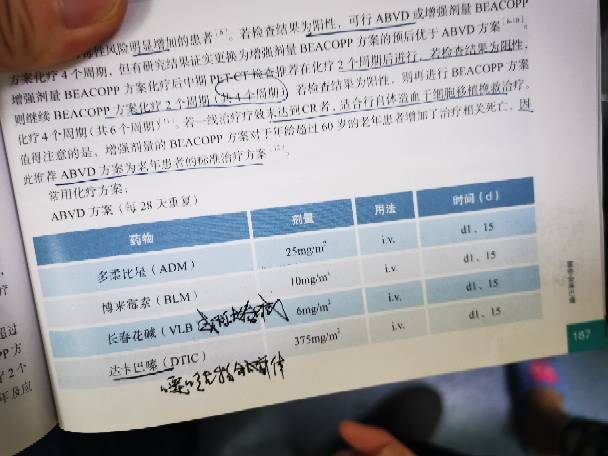 毒性风险明显增加的患者[8]。若检查结果为阳性，可行 ABVD 或增强剂量 BEACOPP
方案化疗 4 个周期，但有研究结果证实更换为增强剂量 BEACOPP 方案的预后优于 ABVD 方案[6-10]。
增强剂量 BEACOPP 方案化疗后中期 PET-CT 检查推荐在化疗 2 个周期后进行，若检查结果为阳性，
则继续 BEACOPP 方案化疗 2 个周期（共 4 个周期），若检查结果为阳性，则再进行 BEACOPP 方案
化疗 4 个周期（共 6 个周期）。若一线治疗疗效未达到CR者，适合行自体造血干细胞移植挽救治疗。
值得注意的是，增强剂量的 BEACOPP 方案对于年龄超过 60 岁的老年患者增加了治疗相关死亡，因
此推荐 ABVD 方案为老年患者的标准治疗方案。
常用化疗方案：
ABVD 方案（每 28 天重复）
药物 剂量 用法 时间（d）
多柔比星（ADM） 25mg/m² i.v. d1、15
博来霉素（BLM） 10mg/m² i.v. d1、15
长春花碱（VLB 6mg/m² i.v. d1、15
达卡巴嗪（DTIC） 375mg/m² i.v. d1、15
187
疗
过
PP 方
2 个
年及应